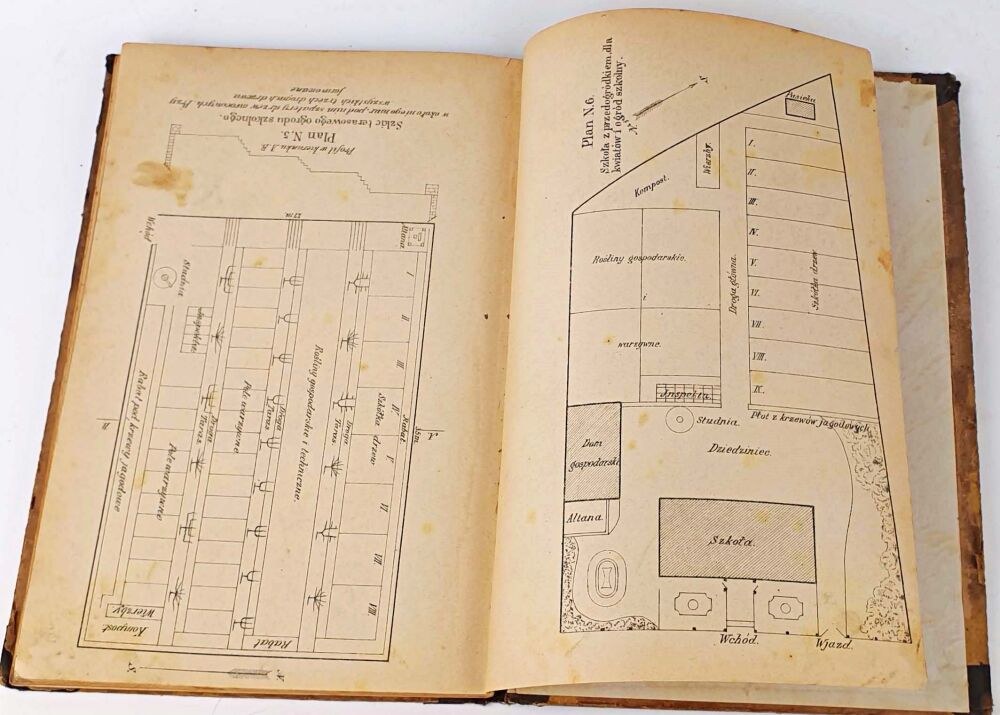 Plan N. 5.
Szkic terasowego ogrodu szkolnego.
Profil w kierunku A.B.
Wchód
27 m
Altana
Studnia
Inspekta
Rabat pod krzewy jagodowe
Pole warzywne
Droga
Taras
Pole warzywne
Droga
Taras
Rośliny gospodarskie i techniczne.
Droga
Taras
Szkółka drzew
I
II
III
IV
V
VI
VII
VIII
Rabat
35 m
A
B
Kompost
Wierzby
Rabat
S.
N
Plan N. 6.
Szkoła z przedogródkiem dla
kwiatów i ogród szkolny.
N
S.
Pasieka
Wierzby.
Kompost.
I.
II.
III.
IV.
V.
VI.
VII.
VIII.
IX.
Szkółka drzew
Droga główna.
Rośliny gospodarskie.
i
warzywne.
Inspekta
Płot z krzewów jagodowych
Studnia.
Dziedziniec.
Dom
gospodarski
Altana.
Szkoła.
Wchód.
Wjazd.